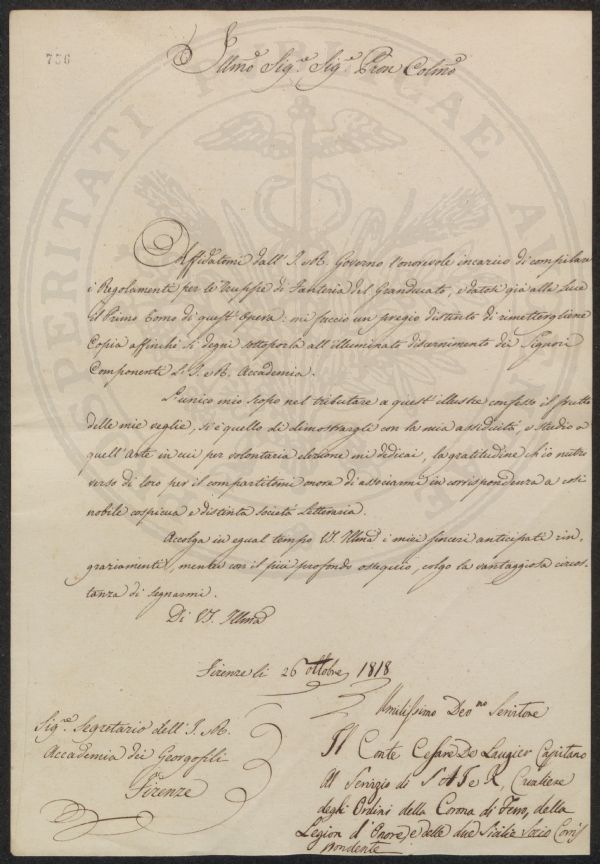 756
Illmo Sigre Sigre Pron Colmo
PROSPERITATI PUBLICAE AU
Affidatomi dall' I. e R. Governo l'onorevole incarico di compilare
i Regolamenti per le Truppe di Fanteria del Granducato, e datosi già alla luce
il Primo Tomo di quest' Opera: mi faccio un pregio distinto di rimettergliene
Copia affinchè si degni sottoporla all' illuminato discernimento dei Signori
Componenti I. e R. Accademia.
L'unico mio scopo nel tributare a quest' illustre consesso il frutto
delle mie veglie, si è quello di dimostrargli con la mia assiduità, e studio a
quell' Arte in cui per volontaria elezione mi dedicai, la gratitudine ch'io nutro
verso di loro per il compartitomi onore di associarmi in corrispondenza a così
nobile cospicua e distinta società Letteraria.
Accolga in egual tempo VS. Illma i miei sinceri anticipati rin-
graziamenti, mentre con il più profondo ossequio, colgo la vantaggiosa circos-
tanza di segnarmi.
Di VS. Illma
Firenze li 26 Ottobre 1818
Umilissimo Devno Servitore
Sigre Segretario dell' I. R.
Accademia dei Georgofili
Firenze
Il Conte Cesare De Laugier Capitano
Al Servizio di S A I e R, Cavaliere
degli Ordini della Corona di Ferro, della
Legion d'Onore, e delle due Sicilie Socio Corris
pondente